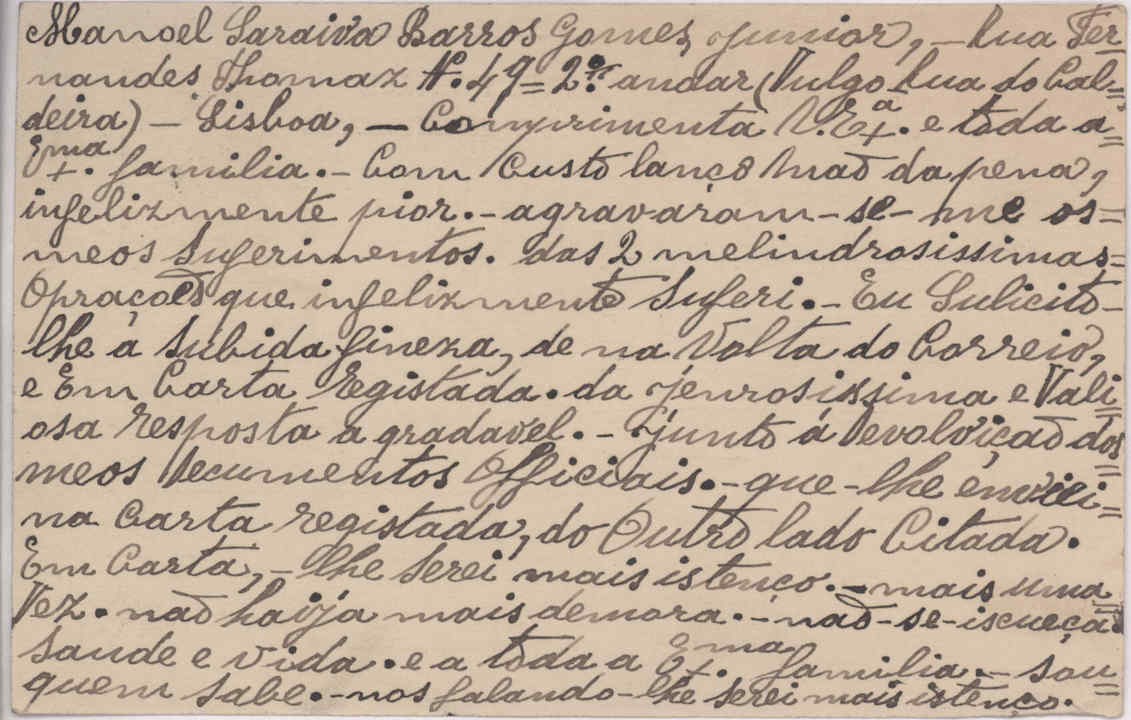 Manoel Saraiva Barros Gomes, junior, – Rua Fer-
nandes Thomaz N.º 49 = 2.º andar (Vulgo Rua do Cal=
deira) – Lisboa, – Comprimenta V. Ex.ª e tôda a=
Ex.ma familia. – Com Custo lanço mao da pena,
infelizmente pior. – agravaram-se-me os=
meos Suferimentos. das 2 melindrosissimas=
Opraçoes que infelizmente Suferi. – Eu Sulicito-
lhe a Subida fineza, de na Volta do Correio,
e Em Carta Registada. da jenrosissima e Vali=
osa Resposta agradavel. – junto á Devoloiçao dos=
meos Decumentos Officiais. – que-lhe enviei=
na Carta registada, do Outro lado Citada.
Em Carta, – lhe Serei mais istenço. – mais uma=
Vez. nao haija mais demora. – nao-se-iscueça.
Saude e vida. e a tôda a Ex.ma familia. – sou=
quem Sabe. – nos falando-lhe Serei mais istenço.